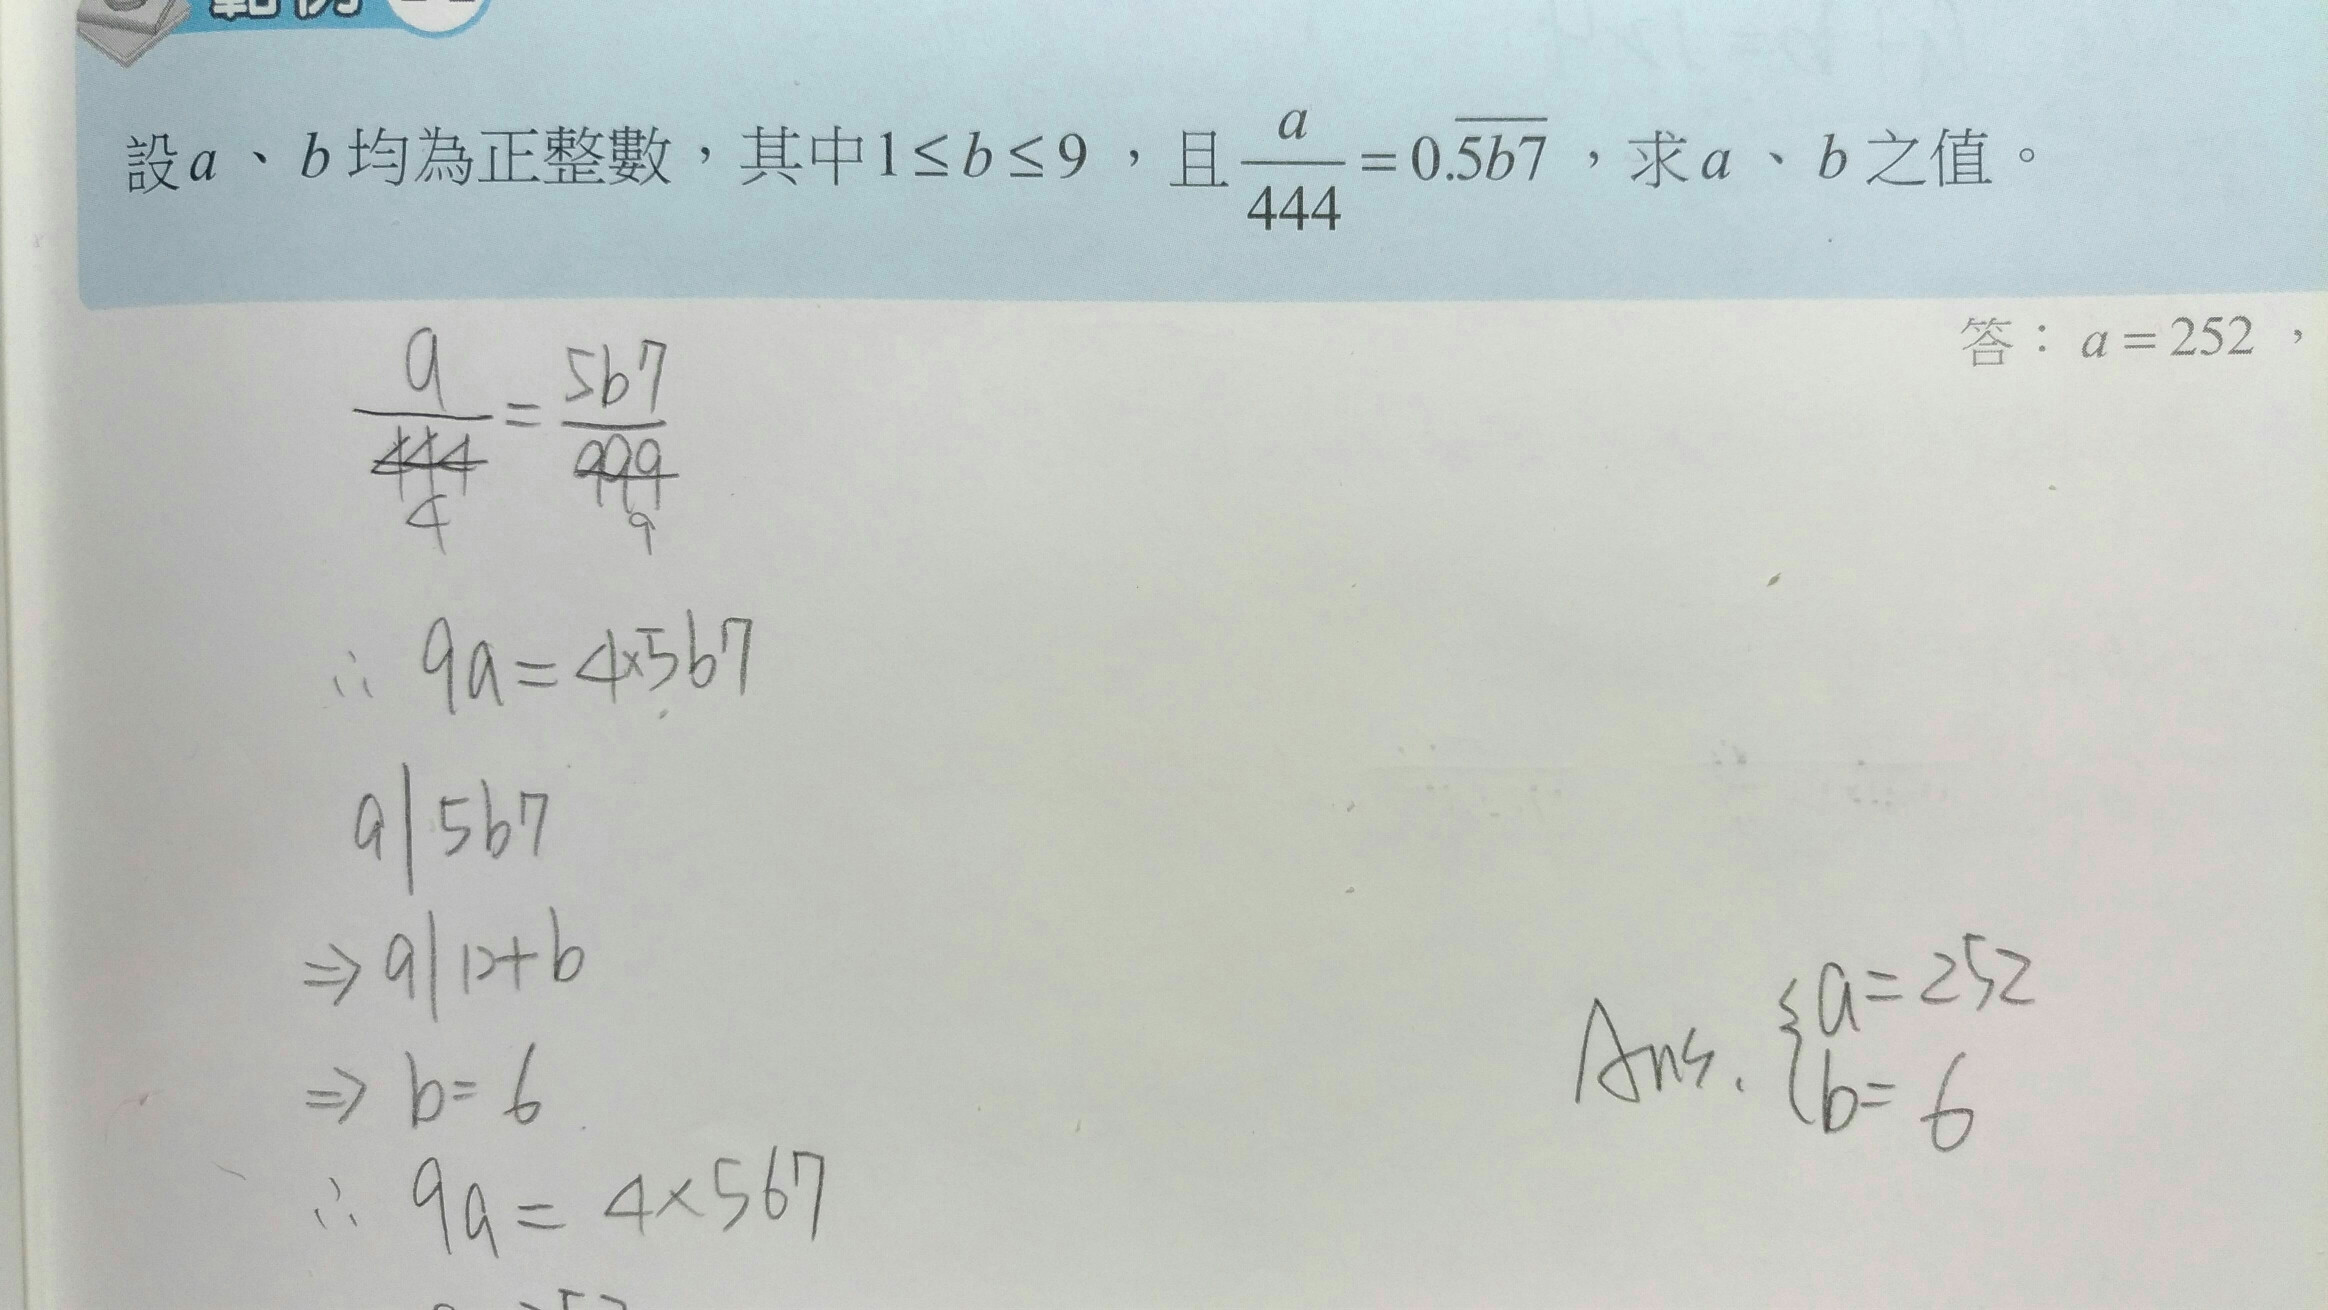 範例
設a、b均為正整數，其中1≤b≤9，且a/444=0.\overline{5b7}，求a、b之值。
答：a=252，
a/444=5b7/999
4 9
∴ 9a=4×5b7
9|5b7
⇒ 9|12+b
⇒ b=6
∴ 9a=4×567
Ans. {a=252
b=6